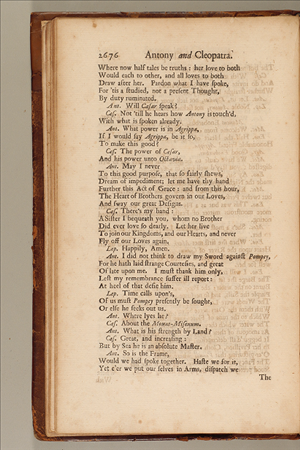 2676 Antony and Cleopatra.
Where now half tales be truths: her love to both
Would each to other, and all loves to both
Draw after her. Pardon what I have spoke,
For 'tis a studied, not a present Thought,
By duty ruminated.
Ant. Will Cæsar speak?
Cæs. Not 'till he hears how Antony is touch'd,
With what is spoken already.
Ant. What power is in Agrippa,
If I would say Agrippa, be it so,
To make this good?
Cæs. The power of Cæsar,
And his power unto Octavia.
Ant. May I never
To this good purpose, that so fairly shews,
Dream of impediment; let me have thy hand
Further this Act of Grace: and from this hour,
The Heart of Brothers govern in our Loves,
And sway our great Designs.
Cæs. There's my hand:
A Sister I bequeath you, whom no Brother
Did ever love so dearly. Let her live
To join our Kingdoms, and our Hearts, and never
Fly off our Loves again.
Lep. Happily, Amen.
Ant. I did not think to draw my Sword against Pompey,
For he hath laid strange Courtesies, and great
Of late upon me. I must thank him only,
Lest my remembrance suffer ill report:
At heel of that defie him.
Lep. Time calls upon's,
Of us must Pompey presently be sought,
Or else he seeks out us.
Ant. Where lyes he?
Cæs. About the Mount-Misenum.
Ant. What is his strength by Land?
Cæs. Great, and increasing:
But by Sea he is an absolute Master.
Ant. So is the Frame,
Would we had spoke together. Haste we for it,
Yet e'er we put our selves in Arms, dispatch we
The